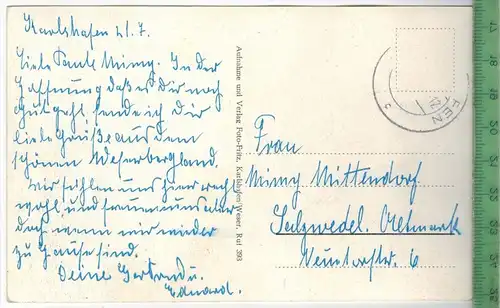 Karlshafen 21.7.
Liebe Tante Mimy. In der
Hoffnung daß es Dir noch
gut geht, sende ich Dir
liebe Grüße aus dem
schönen Weserbergland.
Wir fühlen uns hier recht
wohl, und freuen uns aber
doch wenn wir wieder
zu Hause sind.
Deine Gertrud u.
Eduard.
Aufnahme und Verlag Foto-Fritz, Karlshafen/Weser, Ruf 393
Frau
Mimy Mittendorf
Salzwedel. Altmark
6